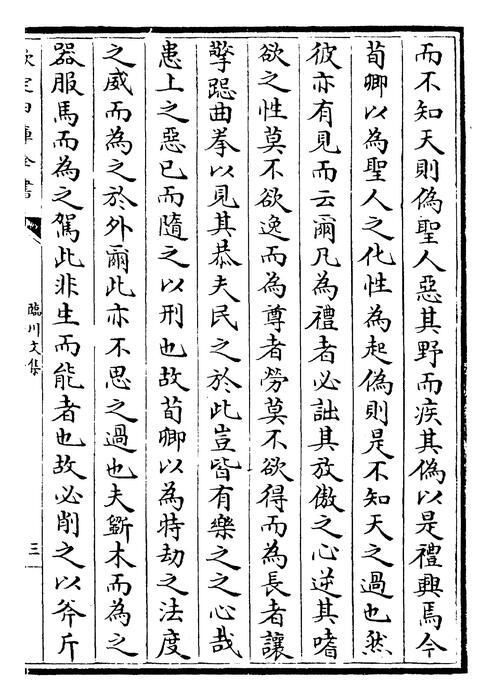 而不知天則偽聖人惡其野而疾其偽以是禮興焉今
荀卿以為聖人之化性為起偽則是不知天之過也然
彼亦有見而云爾凡為禮者必詘其放傲之心逆其嗜
欲之性莫不欲逸而為尊者勞莫不欲得而為長者讓
擎跽曲拳以見其恭夫民之於此豈皆有樂之之心哉
患上之惡已而隨之以刑也故荀卿以為特劫之法度
之威而為之於外爾此亦不思之過也夫斵木而為之
器服馬而為之駕此非生而能者也故必削之以斧斤
欽定四庫全書
臨川文集
三